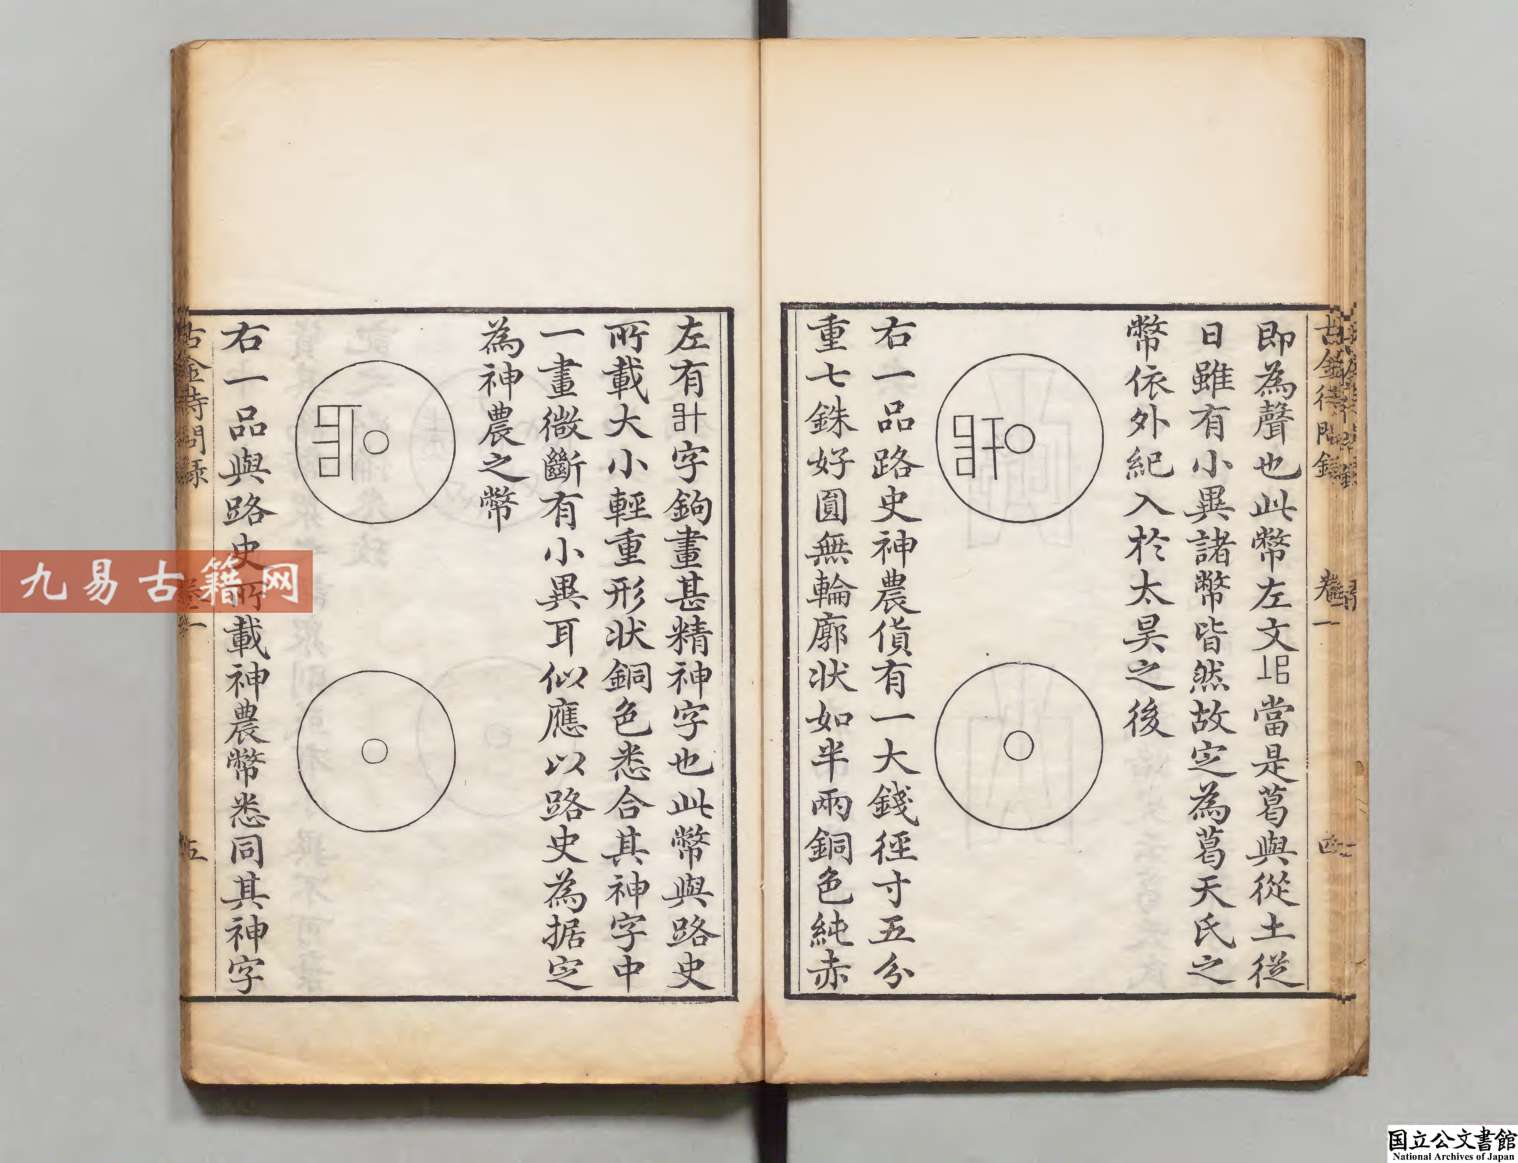 古金待問錄
卷一
四
即為聲也此幣左文𠱠當是葛與從土從
日雖有小異諸幣皆然故定為葛天氏之
幣依外紀入於太昊之後
右一品路史神農貨有一大錢徑寸五分
重七銖好圓無輪廓状如半兩銅色純赤
左有字鉤畫甚精神字也此幣與路史
所載大小輕重形状銅色悉合其神字中
一畫微斷有小異耳似應以路史為据定
為神農之幣
右一品與路史所載神農幣悉同其神字
古金待問录
卷一
五
九易古籍网
国立公文書館
National Archives of Japan